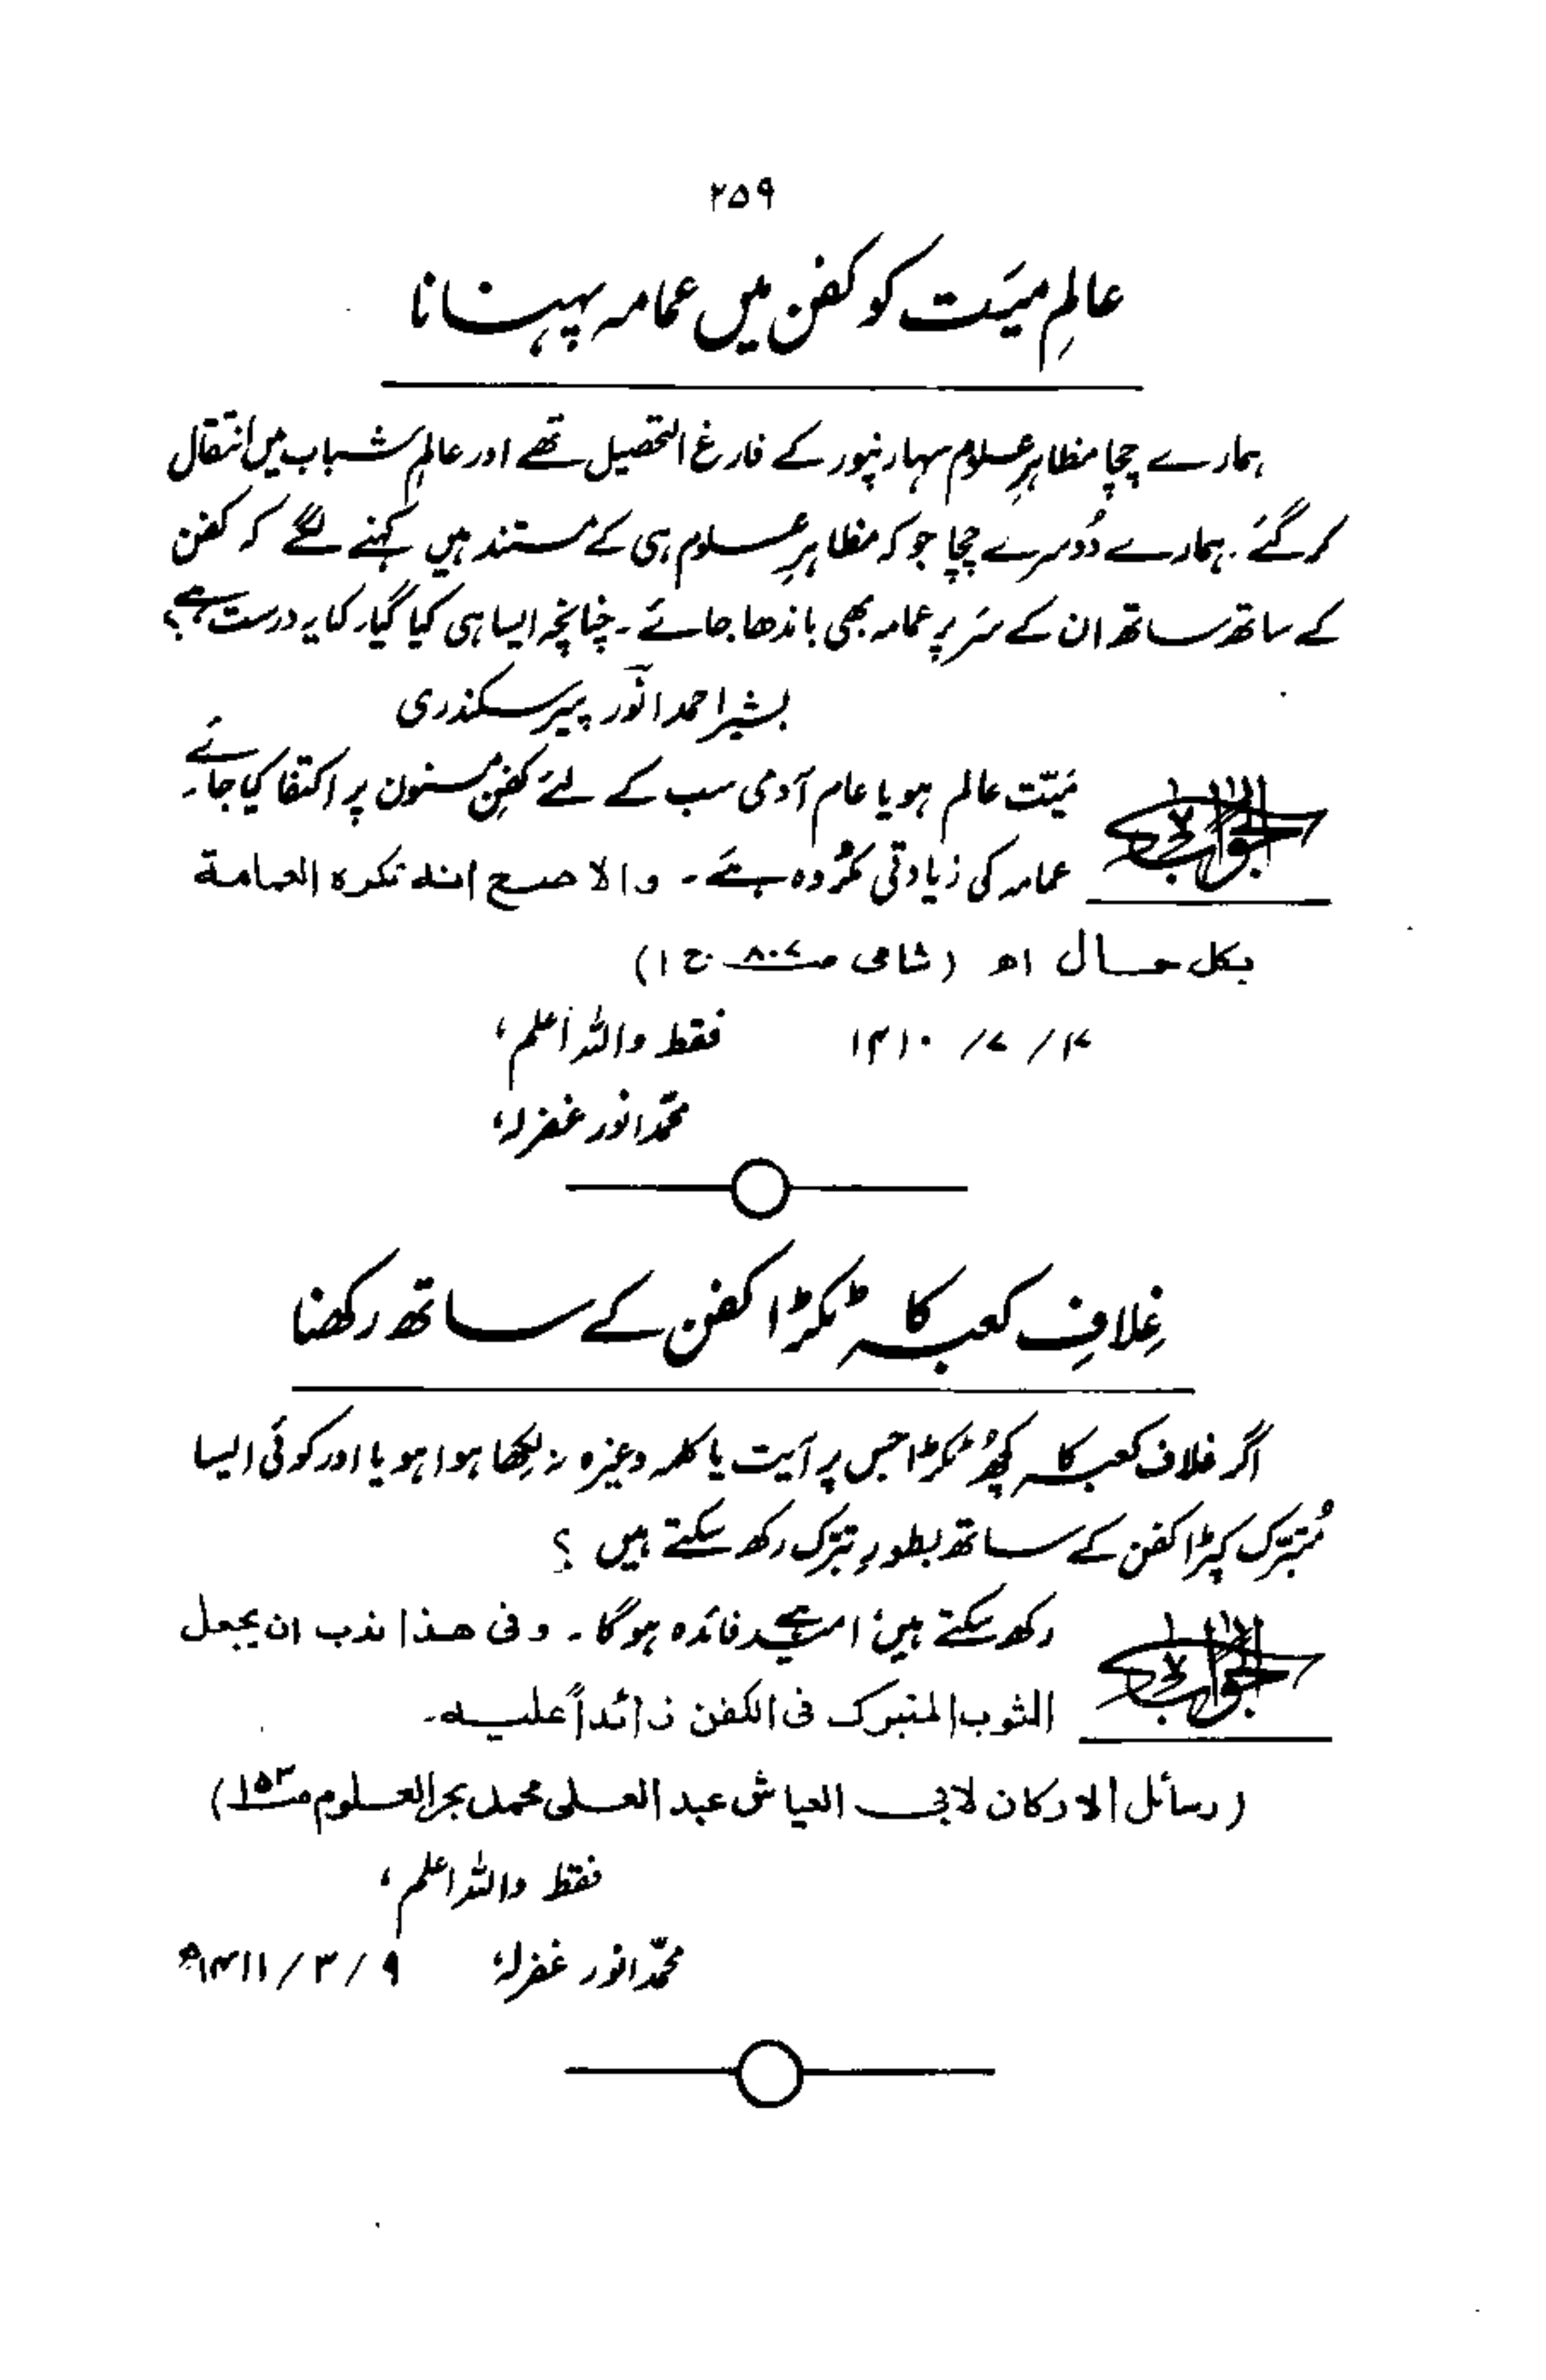 ۲۵۹
عالمِ میّت کو کفن میں عمامہ پہنانا
ہمارے چچا مظاہرِ علوم سہارنپور کے فارغ التحصیل تھے اور عالمِ شباب میں انتقال
کر گئے۔ ہمارے دُوسرے چچا جو کہ مظاہرِ علوم ہی کے مستند ہیں کہنے لگے کہ کفن
کے ساتھ ساتھ ان کے سَر پر عمامہ بھی باندھا جائے۔ چنانچہ ایسا ہی کیا گیا۔ کیا یہ درست ہے؟
بشیر احمد انور پیر سکندری
الجواب
میّت عالم ہو یا عام آدمی سب کے لئے کفنِ مسنون پر اکتفا کیا جائے۔
عمامہ کی زیادتی مکرُوہ ہے۔ والاصح انہ تکرہ العمامة
بکل حال اھ (شامی ص۸۰۷ ج۱)
فقط واللہ اعلم،
محمّد انور غفرلہٗ
غِلافِ کعبہ کا ٹکڑا کفن کے ساتھ رکھنا
اگر غلاف کعبہ کا کچھ ٹکڑا جس پر آیت یا کلمہ وغیرہ نہ لکھا ہوا ہو یا اور کوئی ایسا
مُتبرّک کپڑا کفن کے ساتھ بطورِ تبرّک رکھ سکتے ہیں ؟
الجواب
رکھ سکتے ہیں، امید ہے فائدہ ہوگا۔ وفی هذا ندب ان یجعل
الثوب المتبرک فی الکفن زائداً علیہ۔
(رسائل الارکان لابی العیاش عبد العلی محمد بحر العلوم ص۱۵۳)
فقط واللہ اعلم،
محمّد انور غفرلہٗ ۹/۳/۱۴۱۱ھ